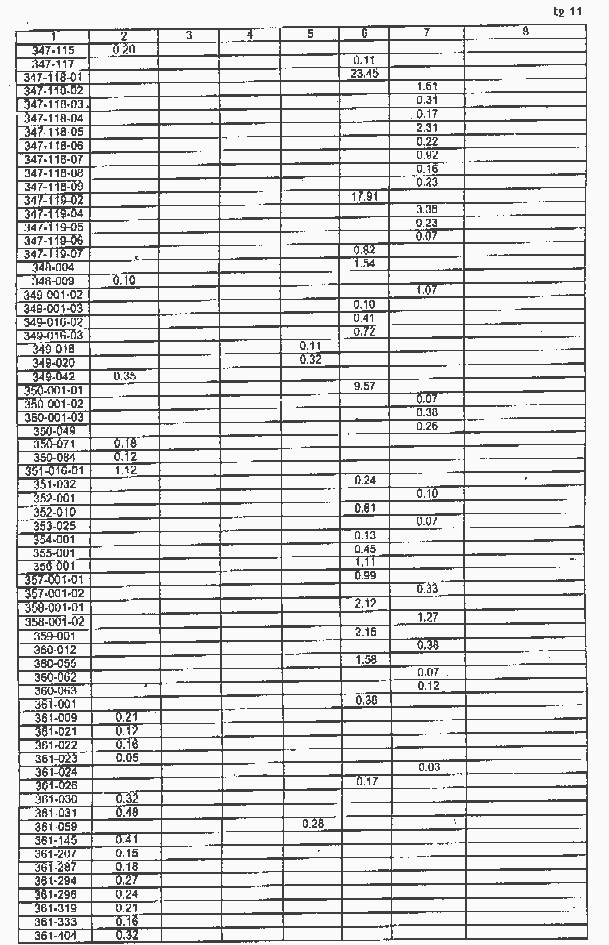 tp 11
1 2 3 4 5 6 7 8
347-115 0.20
347-117 0.11
347-118-01 23.45
347-118-02 1.61
347-118-03 0.31
347-118-04 0.17
347-118-05 2.31
347-118-06 0.22
347-118-07 0.92
347-118-08 0.16
347-118-09 0.23
347-119-02 17.91
347-119-04 3.38
347-119-05 0.23
347-119-06 0.07
347-119-07 0.82
348-004 1.54
348-009 0.10
349-001-02 1.07
349-001-03 0.10
349-016-02 0.41
349-016-03 0.72
349-018 0.11
349-020 0.32
349-042 0.35
350-001-01 9.57
350-001-02 0.07
350-001-03 0.38
350-049 0.26
350-071 0.18
350-084 0.12
351-016-01 1.12
351-032 0.24
352-001 0.10
352-010 0.61
353-025 0.07
354-001 0.13
355-001 0.45
356-001 1.11
357-001-01 0.99
357-001-02 0.33
358-001-01 2.12
358-001-02 1.27
359-001 2.16
360-012 0.38
360-055 1.58
360-062 0.07
360-063 0.12
361-001 0.36
361-009 0.21
361-021 0.12
361-022 0.16
361-023 0.05
361-024 0.03
361-026 0.17
361-030 0.32
361-031 0.48
361-059 0.28
361-145 0.41
361-207 0.15
361-287 0.18
361-294 0.27
361-296 0.24
361-319 0.21
361-333 0.16
361-404 0.32